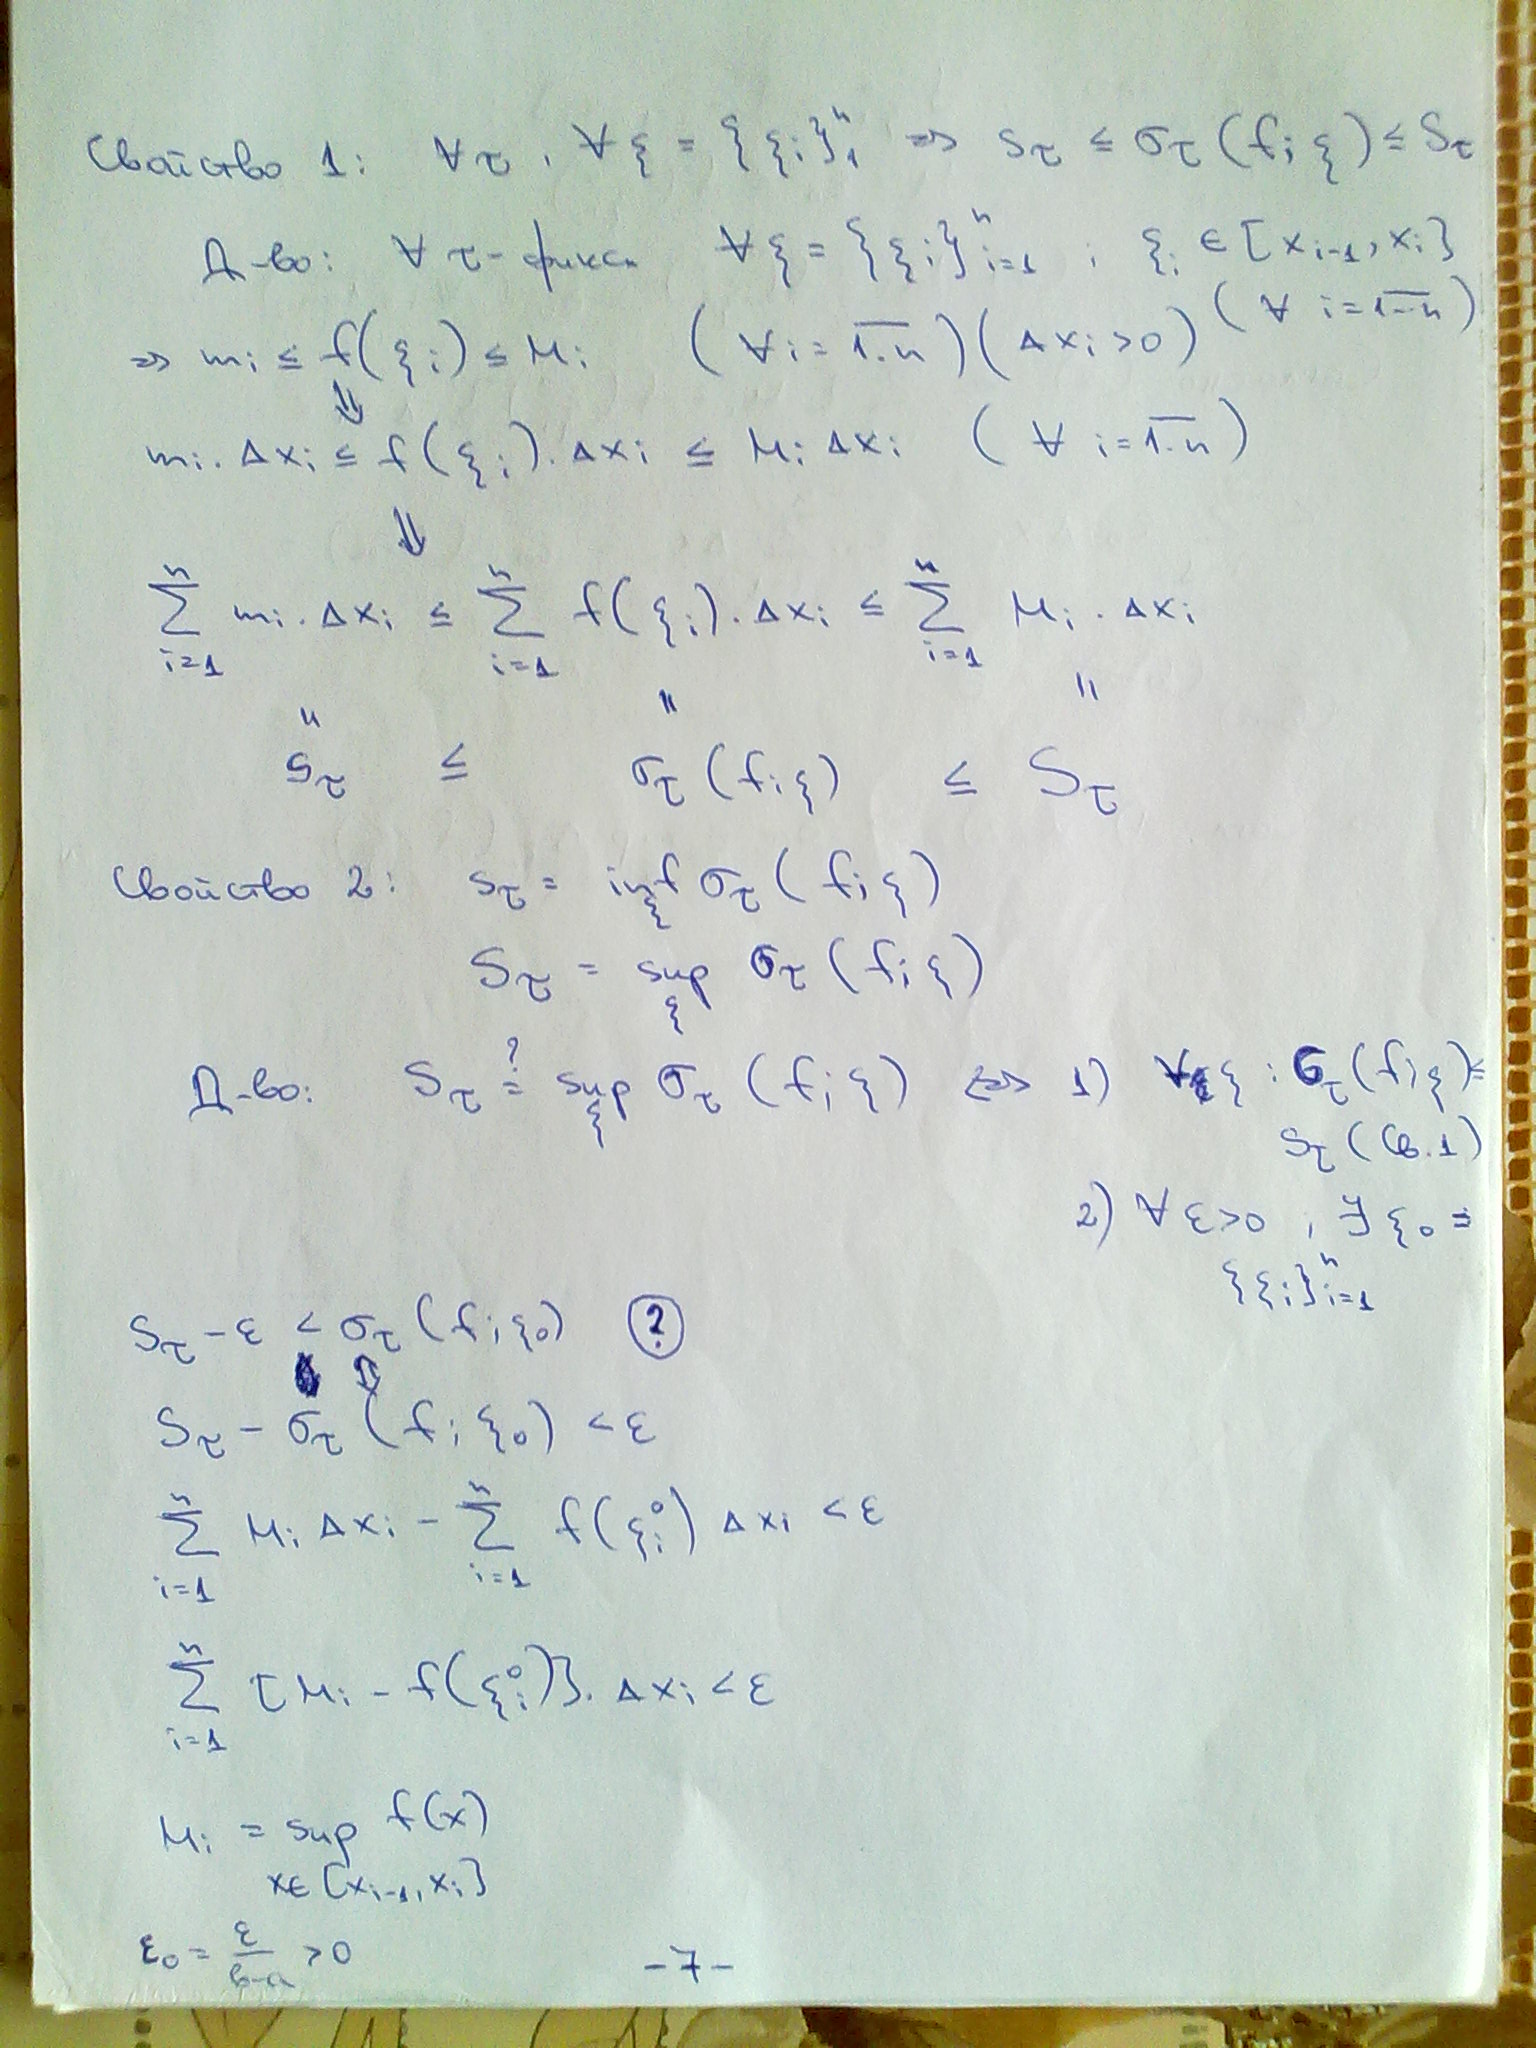 Свойство 1: ∀ τ, ∀ ξ = {ξi}₁ⁿ ⇒ sτ ≤ στ(f; ξ) ≤ Sτ
Д-во: ∀ τ - фикс. ∀ ξ = {ξi}ⁿi=1 , ξi ∈ [xi-1, xi]
(∀ i = 1..n)
⇒ mi ≤ f(ξi) ≤ Mi (∀ i = 1..n) (Δxi > 0)
⇓
mi . Δxi ≤ f(ξi) . Δxi ≤ Mi Δxi (∀ i = 1..n)
⇓
∑ⁿi=1 mi . Δxi ≤ ∑ⁿi=1 f(ξi) . Δxi ≤ ∑ⁿi=1 Mi . Δxi
" " "
sτ ≤ στ(f; ξ) ≤ Sτ
Свойство 2: sτ = inf ξ στ(f; ξ)
Sτ = sup ξ στ(f; ξ)
Д-во: Sτ =? sup ξ στ(f; ξ) ⇔ 1) ∀ ξ : στ(f; ξ) ≤
Sτ (Св. 1)
2) ∀ ε > 0 , ∃ ξ0 =
{ξi}ⁿi=1
Sτ - ε < στ(f; ξ0) ?
⇕
Sτ - στ(f; ξ0) < ε
∑ⁿi=1 Mi Δxi - ∑ⁿi=1 f(ξi⁰) Δxi < ε
∑ⁿi=1 [Mi - f(ξi⁰)] . Δxi < ε
Mi = sup f(x)
x∈[xi-1, xi]
ε0 = ε/(b-a) > 0
-7-